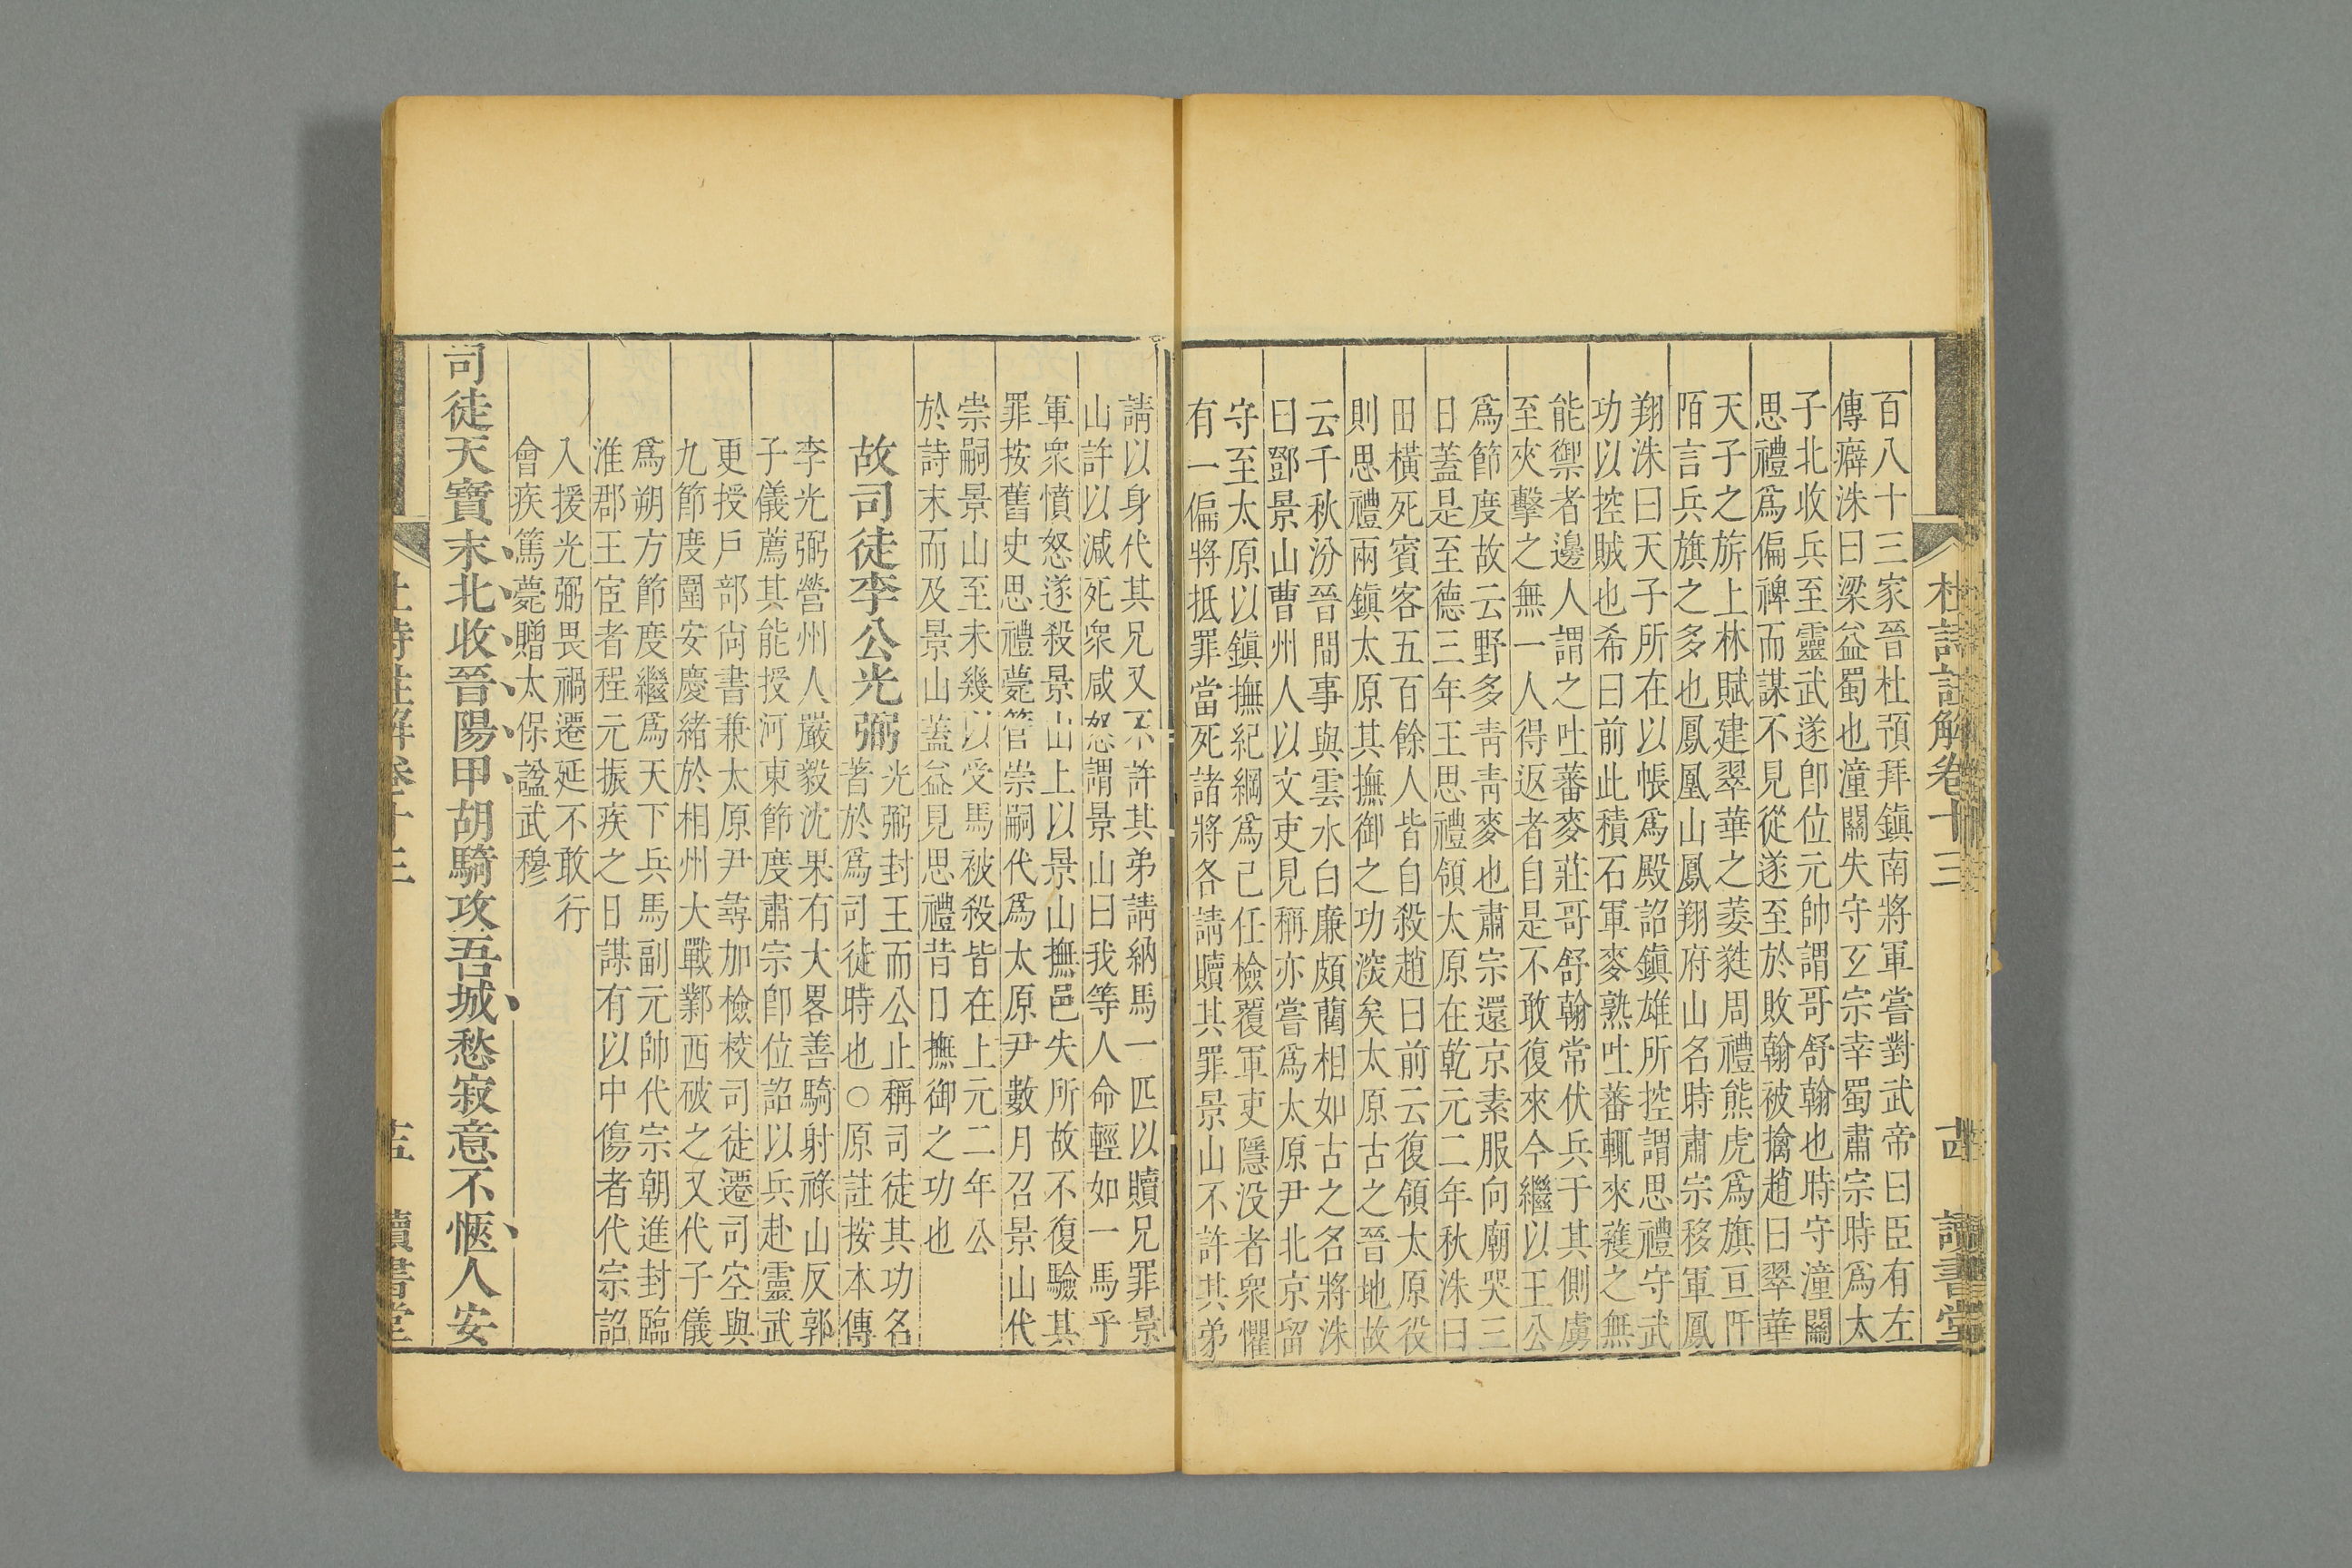 杜詩註解卷十三　　　　讀書堂
百八十三家晉杜預拜鎮南將軍嘗對武帝曰臣有左
傳癖洙曰梁益蜀也潼關失守玄宗幸蜀肅宗時爲太
子北收兵至靈武遂卽位元帥謂哥舒翰也時守潼關
思禮爲偏裨而謀不見從遂至於敗翰被擒趙曰翠華
天子之旂上林賦建翠華之萎蕤周禮熊虎爲旗亘阡
陌言兵旗之多也鳳凰山鳳翔府山名時肅宗移軍鳳
翔洙曰天子所在以帳爲殿詔鎮雄所控謂思禮守武
功以控賊也希曰前此積石軍麥熟吐蕃輒來穫之無
能禦者邊人謂之吐蕃麥莊哥舒翰常伏兵于其側虜
至夾擊之無一人得返者自是不敢復來今繼以王公
爲節度故云野多靑靑麥也肅宗還京素服向廟哭三
日蓋是至德三年王思禮領太原在乾元二年秋洙曰
田橫死賓客五百餘人皆自殺趙曰前云復領太原役
則思禮兩鎮太原其撫御之功深矣太原古之晉地故
云千秋汾晉間事與雲水白廉頗藺相如古之名將洙
曰鄧景山曹州人以文吏見稱亦嘗爲太原尹北京留
守至太原以鎮撫紀綱爲己任檢覆軍吏隱没者衆懼
有一偏將抵罪當死諸將各請贖其罪景山不許其弟
請以身代其兄又不許其弟請納馬一匹以贖兄罪景
山許以減死衆咸怒謂景山曰我等人命輕如一馬乎
軍衆憤怒遂殺景山上以景山撫邑失所故不復驗其
罪按舊史思禮薨管崇嗣代爲太原尹數月召景山代
崇嗣景山至未幾以受馬被殺皆在上元二年公
於詩末而及景山蓋益見思禮昔日撫御之功也
故司徒李公光弼
光弼封王而公止稱司徒其功名
著於爲司徒時也○原註按本傳
李光弼營州人嚴毅沈果有大畧善騎射祿山反郭
子儀薦其能授河東節度肅宗卽位詔以兵赴靈武
更授戶部尙書兼太原尹尋加檢校司徒遷司空與
九節度圍安慶緒於相州大戰鄴西破之又代子儀
爲朔方節度繼爲天下兵馬副元帥代宗朝進封臨
淮郡王宦者程元振疾之日謀有以中傷者代宗詔
入援光弼畏禍遷延不敢行
會疾篤薨贈太保諡武穆
司徒天寶末北收晉陽甲胡騎攻吾城愁寂意不愜人安